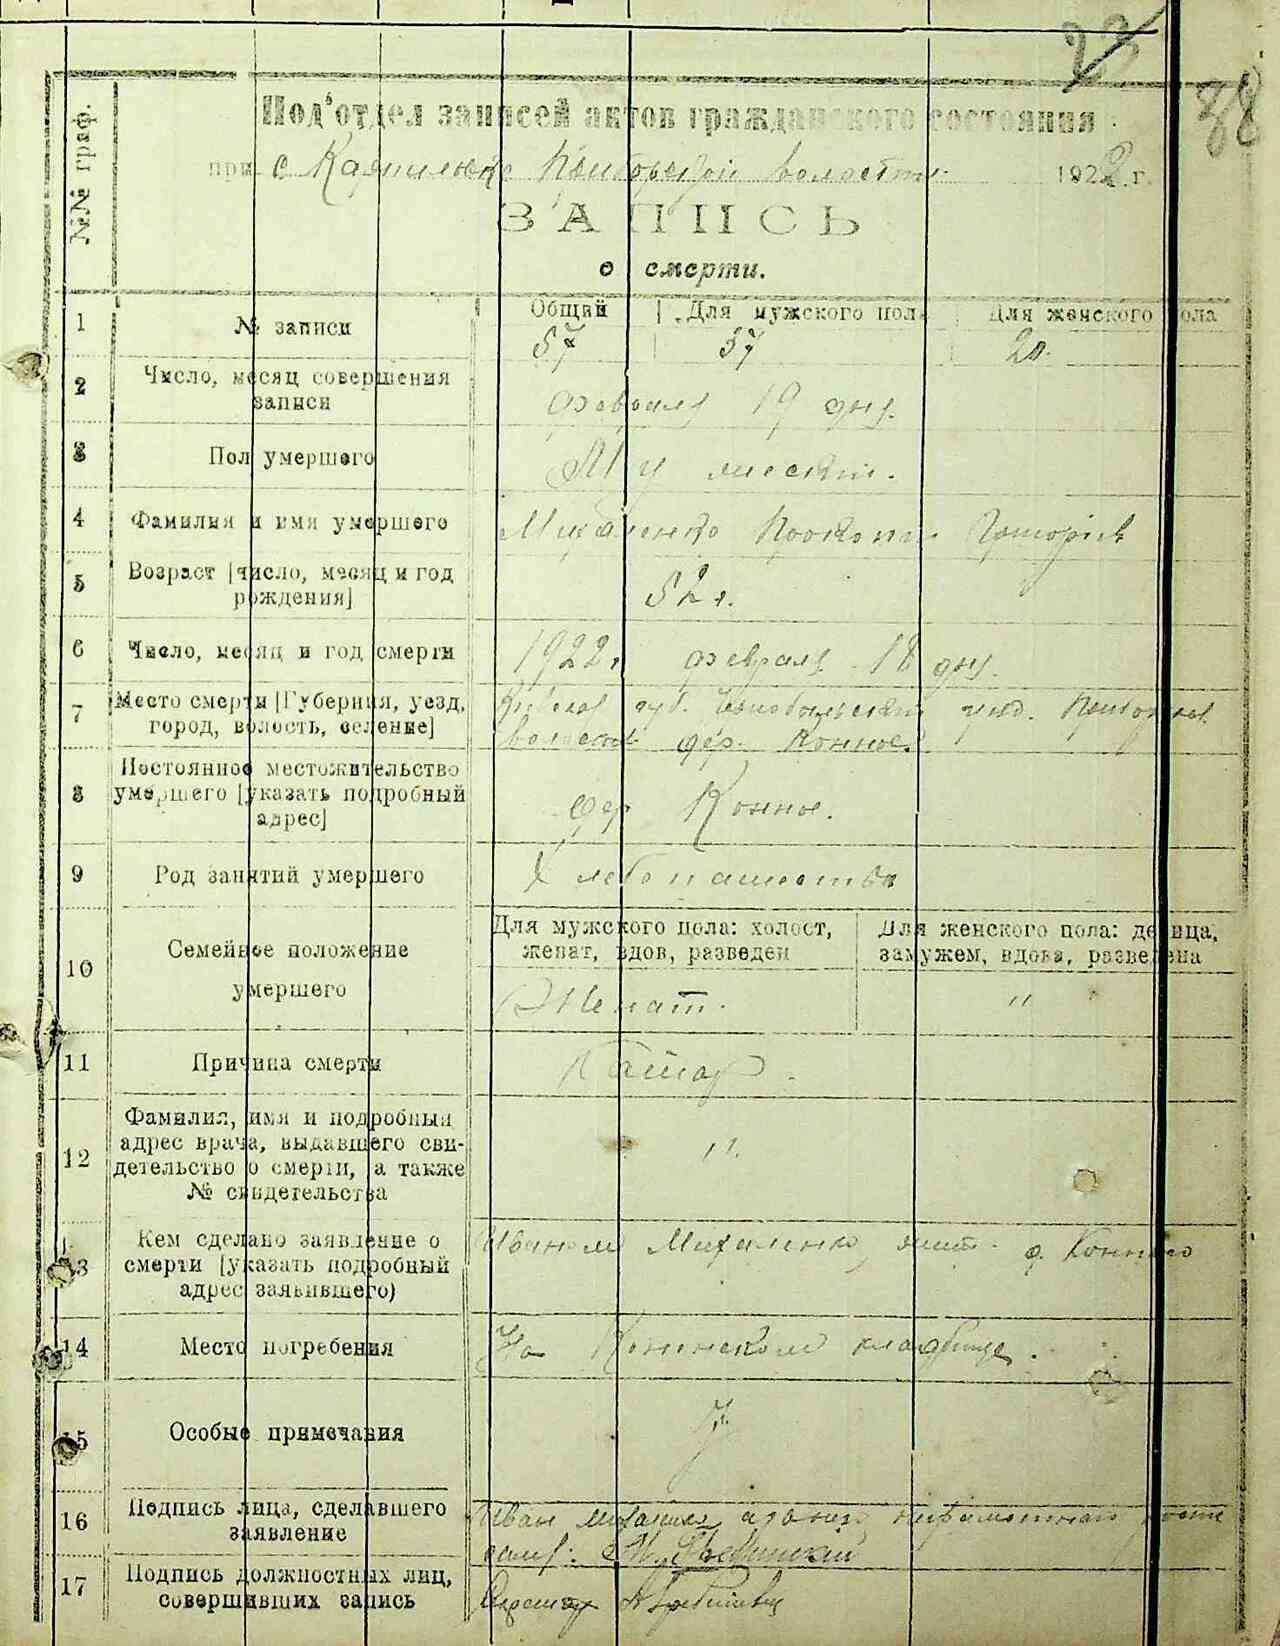 23
38
№№ граф.
Под'отдел записей актов гражданского состояния
при с Карпиловке волости 1922 г.
ЗАПИСЬ
о смерти.
1 № записи Общий Для мужского пола Для женского пола
57 37 20.
2 Число, месяц совершения
записи
февраля 19 дня.
3 Пол умершого Мужеский.
4 Фамилия и имя умершого Михаленко Прокопий Григорьев
5 Возраст [число, месяц и год
рождения]
52 г.
6 Число, месяц и год смерти 1922 г февраля 18 дня.
7 Место смерти [Губерния, уезд,
город, волость, селение]
губ. Чернобыльский уезд.
волости дер. Конное.
8 Постоянное местожительство
умершего [указать подробный
адрес]
дер Конное.
9 Род занятий умершего Хлебопашество
10 Семейное положение
умершего
Для мужского пола: холост,
женат, вдов, разведен
Для женского пола: девица,
замужем, вдова, разведена
Женат. "
11 Причина смерти
12 Фамилия, имя и подробный
адрес врача, выдавшего сви-
детельство о смерти, а также
№ свидетельства
"
13 Кем сделано заявление о
смерти [указать подробный
адрес заявившего)
Иваном Михаленко жит. д. Конного
14 Место погребения На кладбище.
15 Особые примечания
16 Подпись лица, сделавшего
заявление
Иван
17 Подпись должностных лиц,
совершивших запись